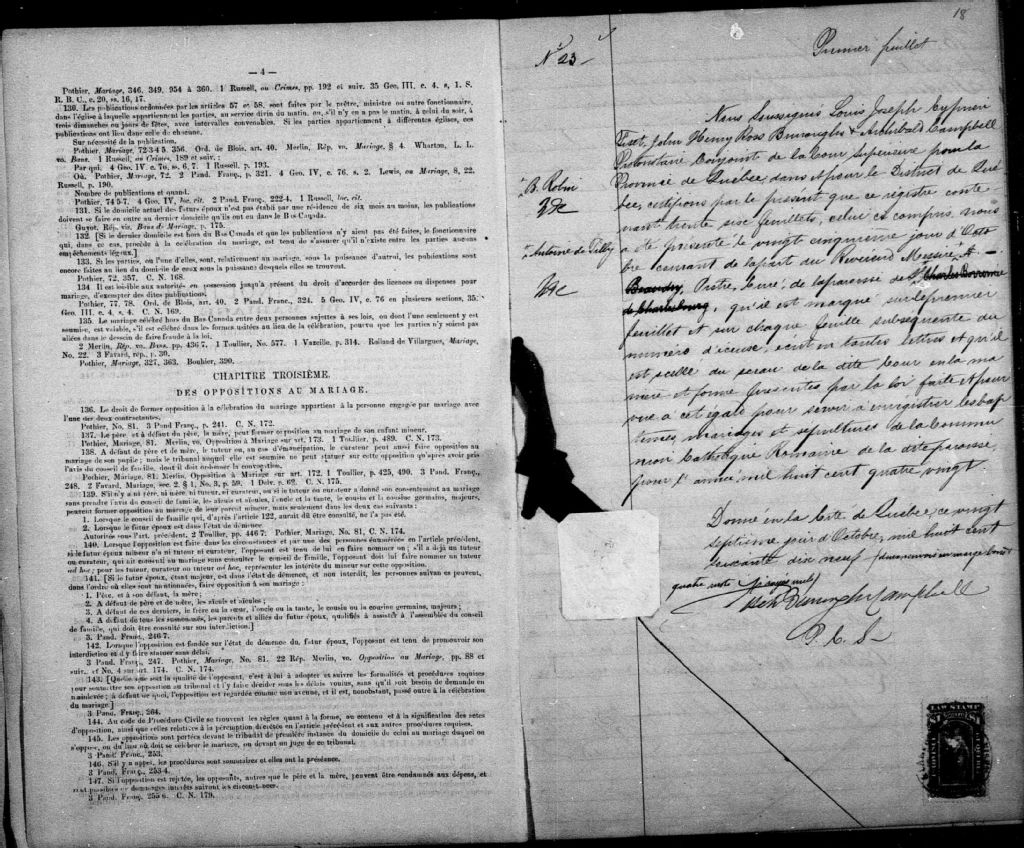 — 4 —
Pothier, Mariage, 346. 349. 954 à 360. 1 Russell, on Crimes, pp. 192 et suiv. 35 Geo. III. c. 4. s, 1. S.
R. B. C., c. 20, ss. 16, 17.
130. Les publications ordonnées par les articles 57 et 58. sont faites par le prêtre, ministre ou autre fonctionnaire,
dans l'église à laquelle appartiennent les parties, au service divin du matin, ou, s'il n'y en a pas le matin, à celui du soir, à
trois dimanches ou jours de fêtes, avec intervalles convenables. Si les parties appartiennent à différentes églises, ces
publications ont lieu dans celle de chacune.
Sur nécessité de la publication.
Pothier, Mariage, 72-3 4 5. 356. Ord. de Blois, art. 40. Merlin, Rép. vo. Mariage, § 4. Wharton, L. L.
vo. Bans. 1 Russell, on Crimes, 189 et suiv. :
Par qui. 4 Geo. IV. c. 76, s. 6, 7. 1 Russell, p. 193.
Où. Pothier, Mariage, 72. 2 Pand. Franç., p. 321. 4 Geo. IV, c. 76, s. 2. Lewis, on Mariage, 8, 22.
Russell, p. 190.
Nombre de publications et quand.
Pothier, 74 5-7. 4 Geo. IV, loc. cit. 2 Pand. Franç., 222-4. 1 Russell, loc. cit.
131. Si le domicile actuel des futurs époux n'est pas établi par une résidence de six mois au moins, les publications
doivent se faire en outre au dernier domicile qu'ils ont eu dans le Bas Canada.
Guyot, Rép. vis. Bans de Mariage, p. 175.
132. [Si le dernier domicile est hors du Bas Canada et que les publications n'y aient pas été faites, le fonctionnaire
qui, dans ce cas, procède à la célébration du mariage, est tenu de s'assurer qu'il n'existe entre les parties aucuns
empêchements légaux.]
133. Si les parties, ou l'une d'elles, sont, relativement au mariage, sous la puissance d'autrui, les publications sont
encore faites au lieu du domicile de ceux sous la puissance desquels elles se trouvent.
Pothier, 72, 357. C. N. 168.
134 Il est loisible aux autorités en possession jusqu'à présent du droit d'accorder des licences ou dispenses pour
mariage, d'exempter des dites publications.
Pothier, 77, 78. Ord. de Blois, art. 40. 2 Pand. Franc., 324. 5 Geo. IV, c. 76 en plusieurs sections, 35.
Geo. III. c. 4, s. 4. C. N. 169.
135. Le mariage célébré hors du Bas Canada entre deux personnes sujettes à ses lois, ou dont l'une seulement y est
soumise, est valable, s'il est célébré dans les formes usitées au lieu de la célébration, pourvu que les parties n'y soient pas
allées dans le dessein de faire fraude à la loi.
2 Merlin, Rép. vo. Bans. pp. 436 7. 1 Toullier, No. 577. 1 Vazeille. p. 314. Rolland de Villargues, Mariage,
No. 22. 3 Favard, rép. p. 39.
Pothier, Mariage, 327, 363. Bouhier, 390.
CHAPITRE TROISIÈME.
DES OPPOSITIONS AU MARIAGE.
136. Le droit de former opposition à la célébration du mariage appartient à la personne engagée par mariage avec
l'une des deux contractantes.
Pothier, No. 81. 3 Pand Franç., p. 241. C. N. 172.
137. Le père et à défaut du père, la mère, peut former opposition au mariage de son enfant mineur.
Pothier, Mariage, 81. Merlin, vo. Opposition à Mariage sur art. 173. 1 Toullier, p. 489. C. N. 173.
138. A défaut de père et de mère, le tuteur ou, en cas d'émancipation, le curateur peut aussi faire opposition au
mariage de son pupille ; mais le tribunal auquel elle est soumise ne peut statuer sur cette opposition qu'après avoir pris
l'avis du conseil de famille, dont il doit ordonner la convocation.
Pothier, Mariage, 81. Merlin, Opposition à Mariage sur art. 172. 1 Toullier, p. 425, 490. 3 Pand. Franç.,
248. 2 Favard, Mariage, sec. 2. § 1, No. 3, p. 59. 1 Delv. p. 62. C. N. 175.
139. S'il n'y a ni père, ni mère, ni tuteur, ni curateur, ou si le tuteur ou curateur a donné son consentement au mariage
sans prendre l'avis du conseil de famille, les aïeuls et aïeules, l'oncle et la tante, le cousin et la cousine germains, majeurs,
peuvent former opposition au mariage de leur parent mineur, mais seulement dans les deux cas suivants :
1. Lorsque le conseil de famille qui, d'après l'article 122, aurait dû être consulté, ne l'a pas été.
2. Lorsque le futur époux est dans l'état de démence.
Autorisés sous l'art. précédent. 2 Toullier, pp. 446 7: Pothier, Mariage, No. 81, C. N. 174.
140. Lorsque l'opposition est faite dans les circonstances et par une des personnes énumérées en l'article précédent,
si le futur époux mineur n'a ni tuteur ni curateur, l'opposant est tenu de lui en faire nommer un ; s'il a déjà un tuteur
ou curateur, qui ait consenti au mariage sans consulter le conseil de famille, l'opposant doit lui faire nommer un tuteur
ad hoc ; pour les tuteur, curateur ou tuteur ad hoc, représenter les intérêts du mineur sur cette opposition.
141. [Si le futur époux, étant majeur, est dans l'état de démence, et non interdit, les personnes suivantes peuvent,
dans l'ordre où elles sont mentionnées, faire opposition à son mariage :
1. Père, et à son défaut, la mère ;
2. A défaut de père et de mère, les aïeuls et aïeules ;
3. A défaut de ces derniers, le frère ou la sœur, l'oncle ou la tante, le cousin ou la cousine germains, majeurs ;
4. A défaut de tous les susnommés, les parents et alliés du futur époux, qualifiés à assister à l'assemblée du conseil
de famille, qui doit être consulté sur son interdiction.]
3. Pand. Franç., 246-7.
142. Lorsque l'opposition est fondée sur l'état de démence du futur époux, l'opposant est tenu de promouvoir son
interdiction et d'y faire statuer sans délai.
3 Pand. Franç., 247. Pothier, Mariage, No. 81. 22 Rép. Merlin, vo. Opposition au Mariage, pp. 88 et
suiv., et No. 4 sur art. 174. C. N. 174.
143. [Quelle que soit la qualité de l'opposant, c'est à lui à adopter et suivre les formalités et procédures requises
pour soumettre son opposition au tribunal et l'y faire décider sous les délais voulus, sans qu'il soit besoin de demande en
mainlevée ; à défaut de quoi, l'opposition est regardée comme non avenue, et il est, nonobstant, passé outre à la célébration
du mariage.]
3 Pand. Franç., 264.
144. Au code de Procédure Civile se trouvent les règles quant à la forme, au contenu et à la signification des actes
d'opposition, ainsi que celles relatives à la péremption décrétée en l'article précédent et aux autres procédures requises.
145. Les oppositions sont portées devant le tribunal de première instance du domicile de celui au mariage duquel on
s'oppose, ou du lieu où doit se célébrer le mariage, ou devant un juge de ce tribunal.
3 Pand. Franc., 253.
146. S'il y a appel, les procédures sont sommaires et elles ont la préséance.
3 Pand. Franç., 253-4.
147. Si l'opposition est rejetée, les opposants, autres que le père et la mère, peuvent être condamnés aux dépens, et
sont passibles de dommages intérêts suivant les circonstances.
3 Pand. Franç. 255 6. C. N. 179.
18
N° 23
Premier feuillet
Nous Soussignés Louis Joseph Cyprien
Fiset, John Henry Ross Burroughs & Archibald Campbell
Protonotaire Conjoint de la Cour Supérieure pour la
Province de Québec dans et pour le District de Qué
bec, certifions par le présent que ce registre conte
nant trente six feuillets, celui ci compris, nous
a été présenté le vingt cinquième jour d'Octo
bre courant de la part du Révérend Messire A
Beaudry, Prêtre, Curé, de la paroisse de St Charles Borromée
de Charlesbourg, qu'il est marqué sur le premier
feuillet et sur chaque feuille subséquente du
numéro d'icelle, écrit en toutes lettres et qu'il
est scellé du sceau de la dite Cour en la ma
nière et forme prescrites par la loi faite et pour
vue à cet égard pour servir à enregistrer les bap
têmes, mariages et sépultures de la Commu
nion Catholique Romaine de la dite paroisse
pour l'année mil huit cent quatre vingt
Donné en la Cité de Québec, ce vingt
septième jour d'Octobre, mil huit cent
soixante dix neuf
quatre mots rayés nuls
Fiset Burroughs Campbell
P. C. S.
B. Robin
Antoine de Tilly
LAW STAMP